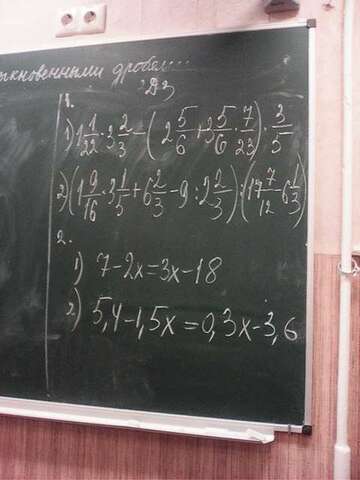 ыкновенными дробями
ДЗ
1.
1) 1 1/22 · 3 2/3 - (2 5/6 + 3 5/6 · 7/23) · 3/5
2) (1 9/16 · 3 1/5 + 6 2/3 - 9 · 2 2/3) : (17 7/12 · 6 1/3)
2.
1) 7-2x=3x-18
2) 5,4-1,5x=0,3x-3,6